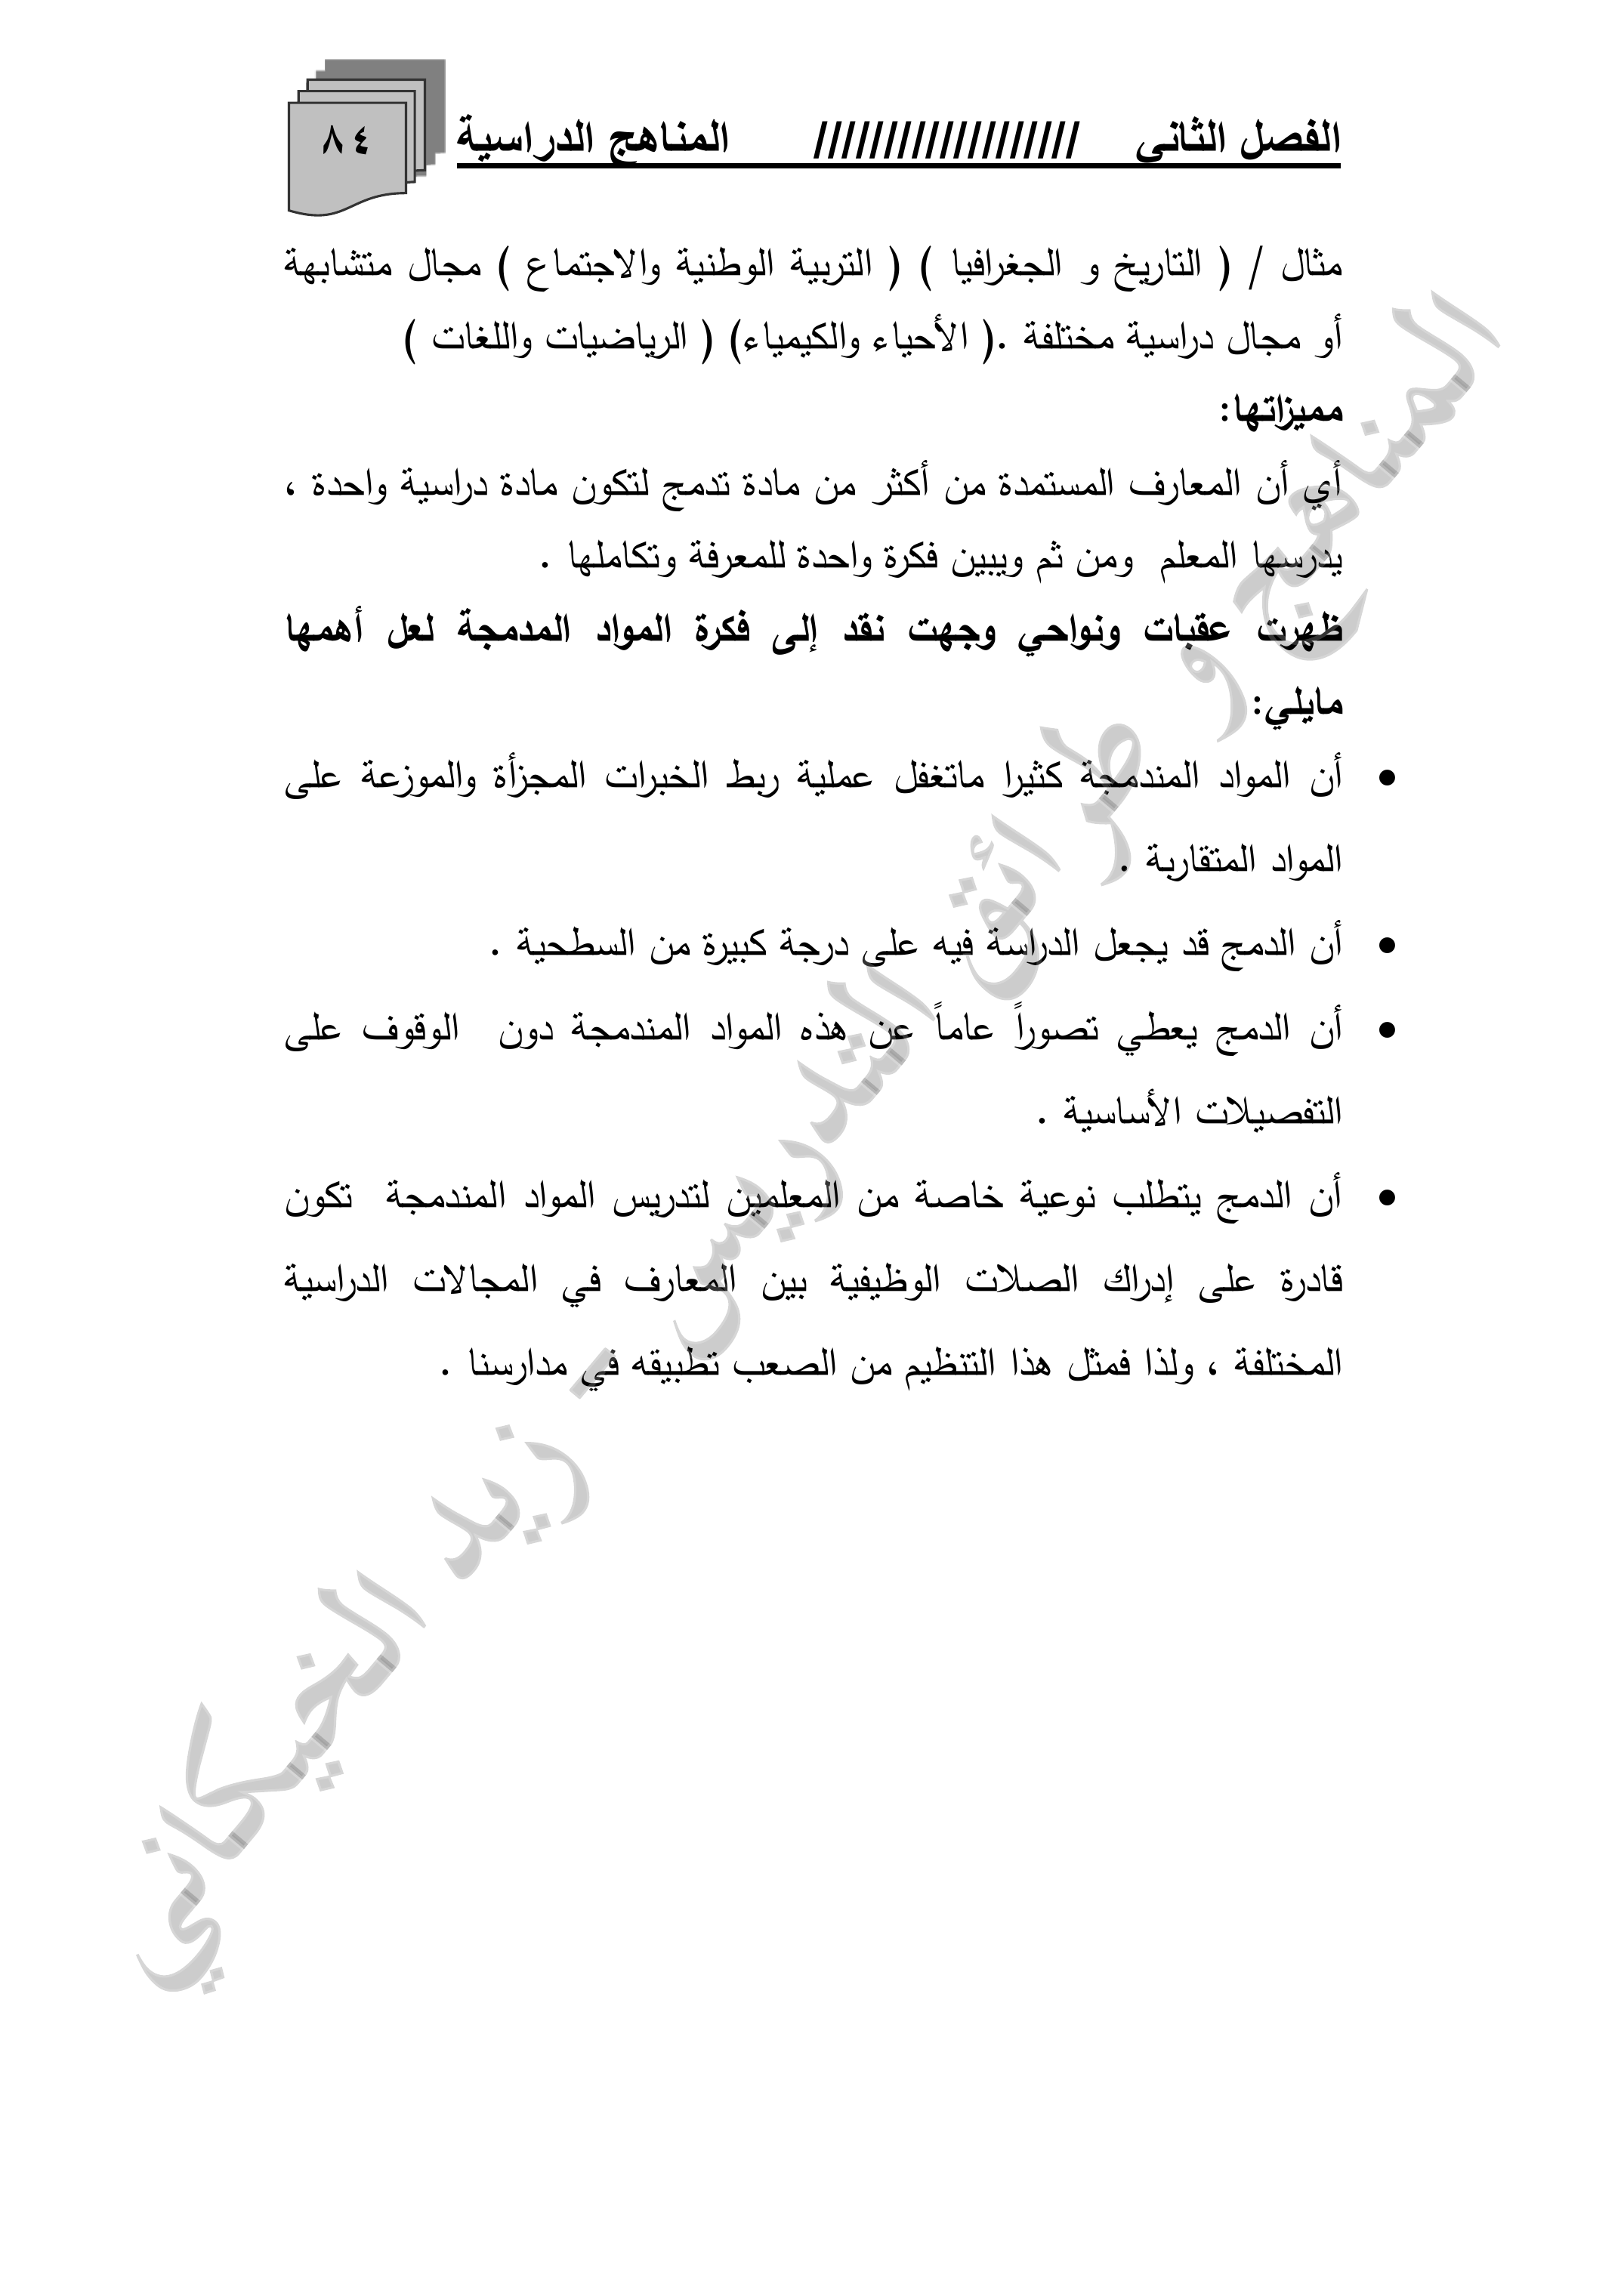 الفصل الثاني /////////////////// المناهج الدراسية ٨٤
مثال / ( التاريخ و الجغرافيا ) ( التربية الوطنية والاجتماع ) مجال متشابهة
أو مجال دراسية مختلفة .( الأحياء والكيمياء) ( الرياضيات واللغات )
مميزاتها:
أي أن المعارف المستمدة من أكثر من مادة تدمج لتكون مادة دراسية واحدة ،
يدرسها المعلم ومن ثم ويبين فكرة واحدة للمعرفة وتكاملها .
ظهرت عقبات ونواحي وجهت نقد إلى فكرة المواد المدمجة لعل أهمها
مايلي:
• أن المواد المندمجة كثيرا ماتغفل عملية ربط الخبرات المجزأة والموزعة على
المواد المتقاربة .
• أن الدمج قد يجعل الدراسة فيه على درجة كبيرة من السطحية .
• أن الدمج يعطي تصوراً عاماً عن هذه المواد المندمجة دون الوقوف على
التفصيلات الأساسية .
• أن الدمج يتطلب نوعية خاصة من المعلمين لتدريس المواد المندمجة تكون
قادرة على إدراك الصلات الوظيفية بين المعارف في المجالات الدراسية
المختلفة ، ولذا فمثل هذا التنظيم من الصعب تطبيقه في مدارسنا .
المناهج و طرائق التدريس - زيد الخيكاني